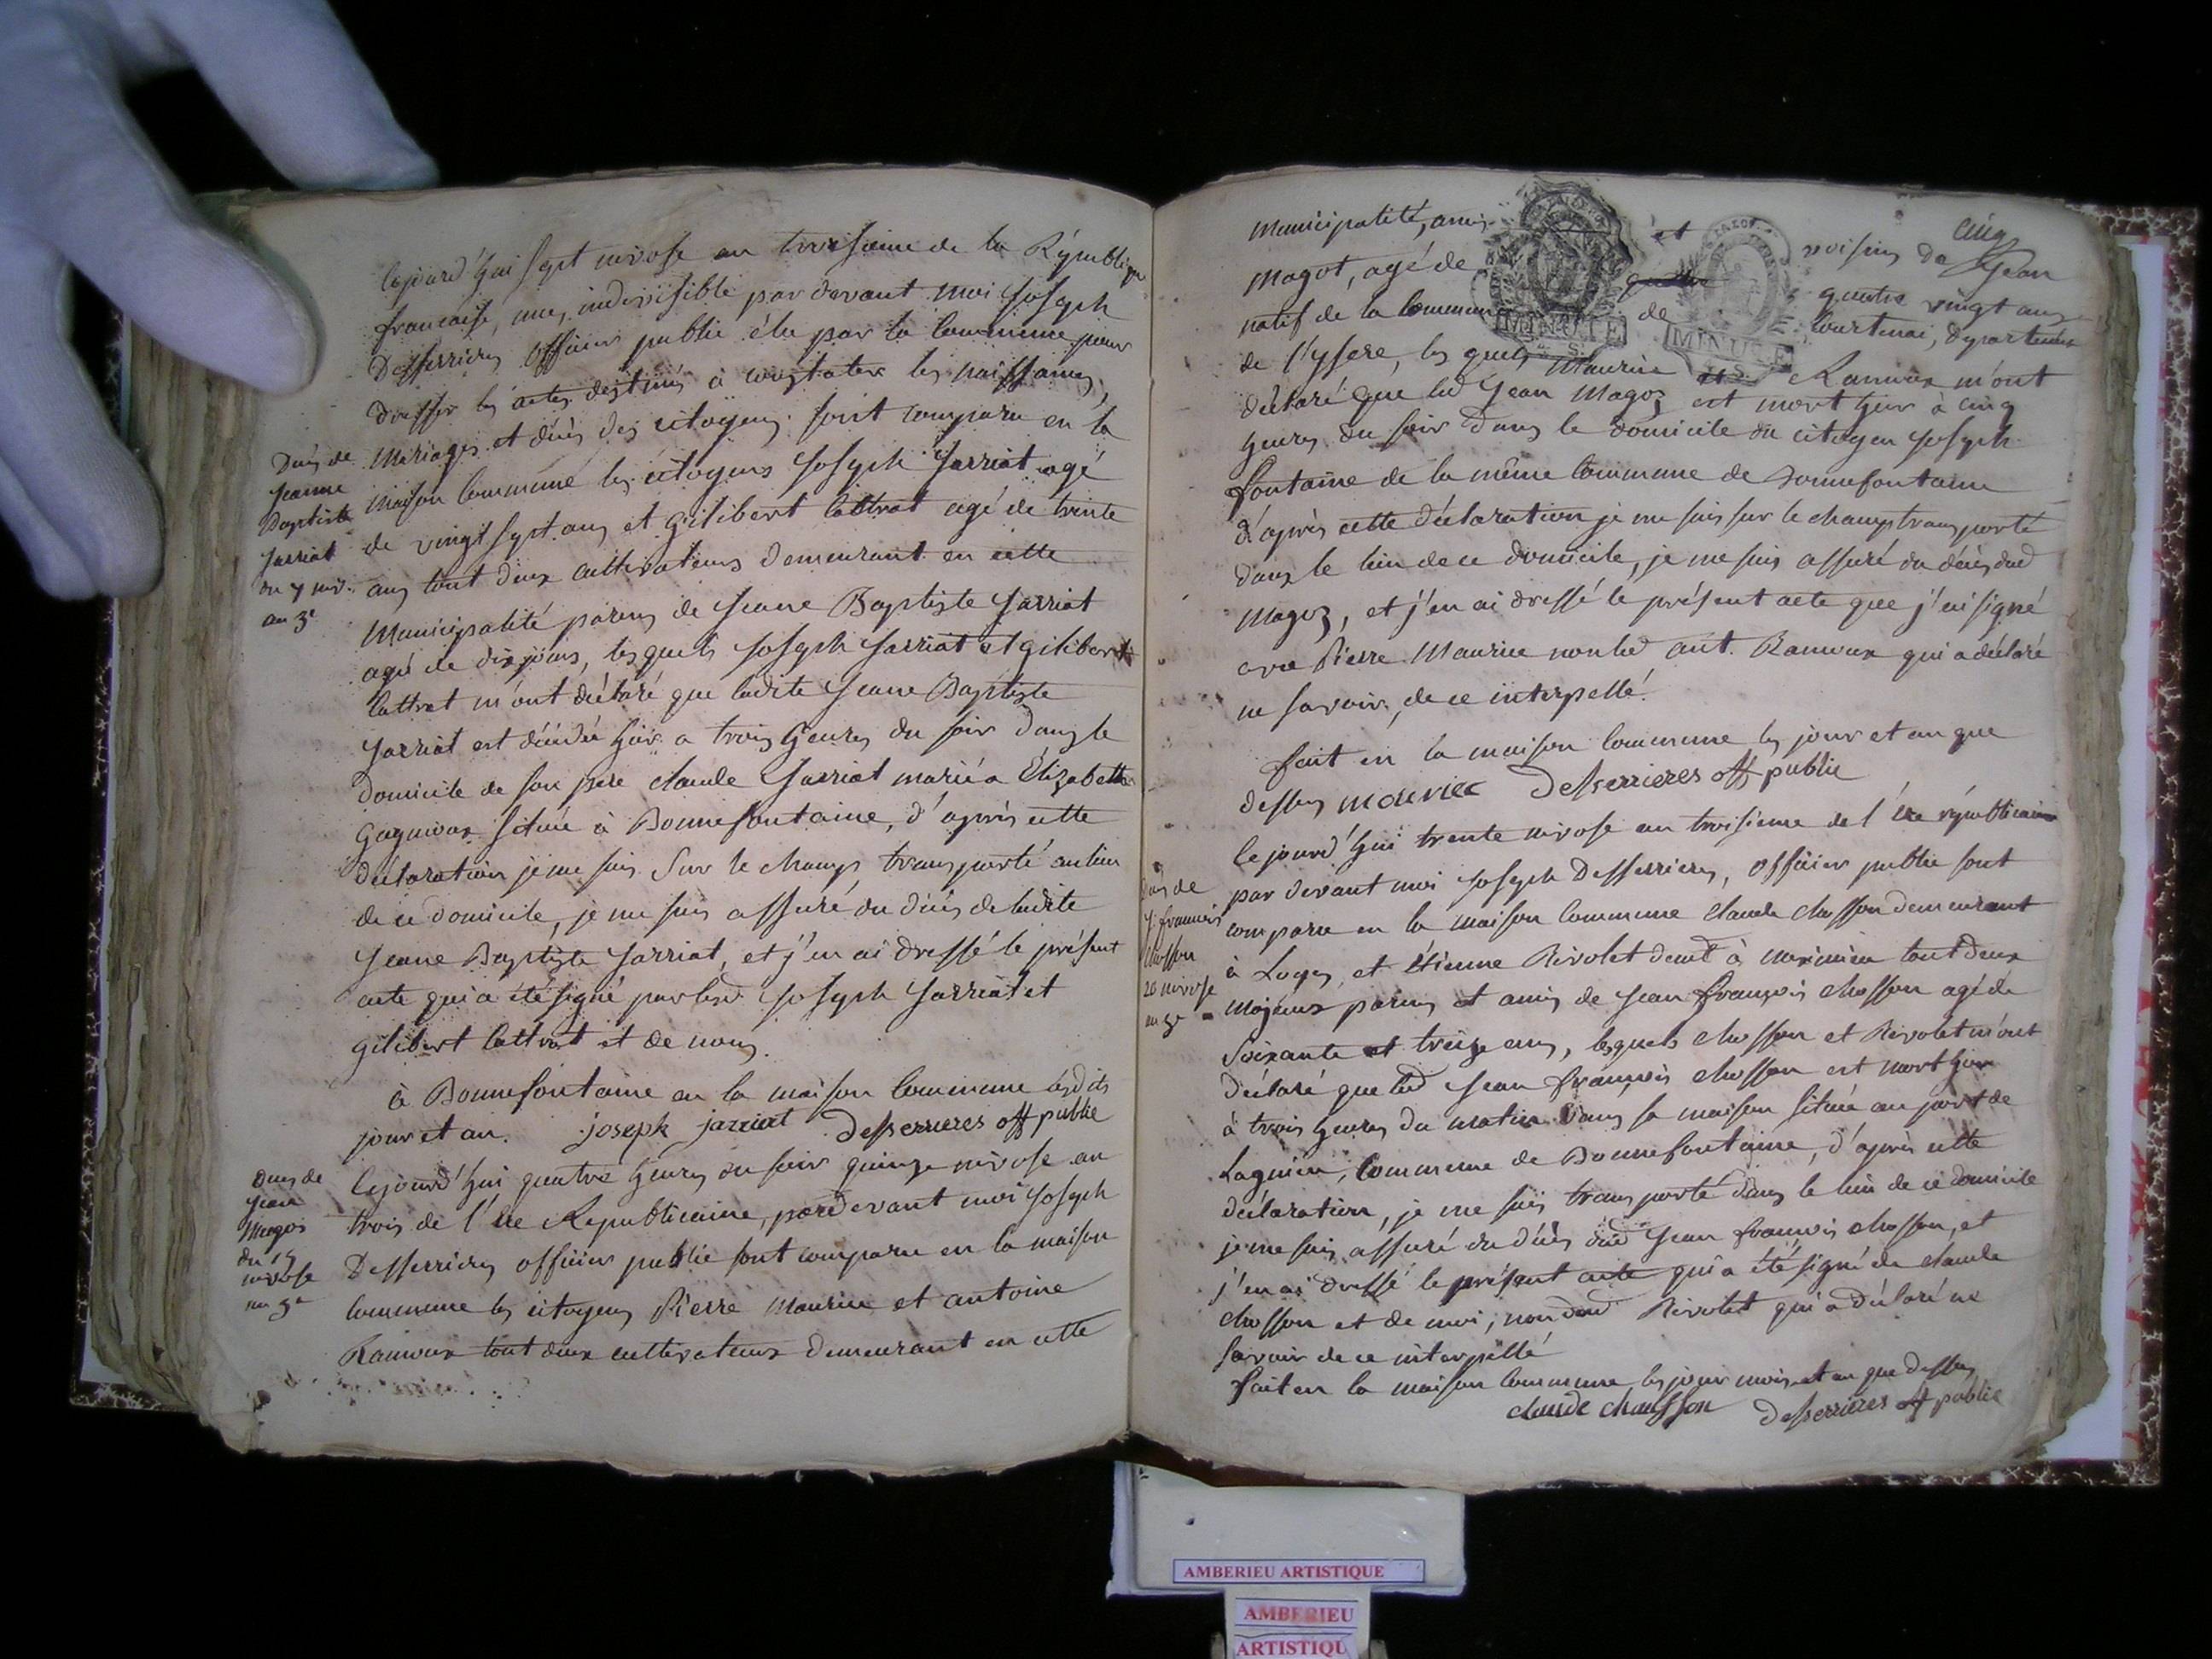 Cejourd'hui sept nivose an troisieme de la République
francaise, une, indivisible par devant moi Joseph
Desserrieres officier public élu par la Commune pour
dresser les actes destinés à constater les naissances,
Mariages et décès des citoyens. sont comparu en la
maison Commune les citoyens Joseph Jarriat agé
de vingt sept ans et gilibert Cattrat agé de trente
ans tout deux cultivateurs demeurant en cette
Municipalité parens de Jeane Baptiste Jarriat
agée de dix jours, lesquels Joseph Jarriat et gilibert
Cattrat m'ont déclaré que ladite Jeane Baptiste
Jarriat est décédée hier a trois heures du soir dans le
domicile de son pere claude Jarriat marié a Elizabeth
située à Bonnefontaine, d'après cette
déclaration je me suis sur le champs transporté au lieu
de ce domicile, je me suis assuré du décès de ladite
Jeane Baptiste Jarriat, et j'en ai dressé le présent
acte qui a été signé par lesd Joseph Jarriat et
gilibert Cattrat et de nous.
à Bonnefontaine en la maison Commune lesdits
jour et an. joseph jarriat Desserrieres off public
Décès de
Jeanne
Baptiste
Jarriat
du 7 niv.
an 3e
Cejourd'hui quatre heures du soir quinze nivose an
trois de l'Ere Republicaine, pardevant moi Joseph
Desserrieres officier public sont comparu en la maison
Commune les citoyens Pierre Maurice et antoine
Ramoux tout deux cultivateurs demeurant en cette
Décès de
Jean
Magos
du 15
nivose
an 3e
cinq
Municipalité, amis et voisins de Jean
Magot, agé de quatre vingt ans
natif de la Commune de Courtenai, département
de l'ysere, les quels Maurice et Ramoux m'ont
déclaré que led Jean Magoz est mort hier à cinq
heures du soir dans le domicile du citoyen Joseph
fontaine de la même Commune de Bonnefontaine
d'après cette déclaration je me suis sur le champ transporté
dans le lieu de ce domicile, je me suis assuré du décès dud
Magoz, et j'en ai dressé le présent acte que j'ai signé
avec Pierre Maurice non led ant. Ramoux qui a déclaré
ne savoir, de ce interpellé.
fait en la maison Commune les jour et an que
dessus Desserrieres off public
Cejourd'hui trente nivose an troisieme de l'Ere républicaine
par devant moi Joseph Desserrieres, officier public sont
comparu en la maison Commune claude chosson demeurant
à Loyes, et étienne Rivolet demt à meximieu tout deux
Majeurs parens et amis de Jean françois chosson agé de
Soixante et treize ans, lesquels chosson et Rivolet m'ont
déclaré que led Jean françois chosson est mort hier
à trois heures du matin dans sa maison située au port de
Lagnieu, Commune de Bonnefontaine, d'après cette
déclaration, je me suis transporté dans le lieu de ce domicile
je me suis assuré du décès dud Jean francois chosson, et
j'en ai dressé le présent acte qui a été signé de claude
chosson et de moi, non dud Rivolet qui a déclaré ne
savoir de ce interpellé
fait en la maison Commune les jour mois et an que dessus
claude chausson Desserrieres off public
Décès de
J. francois
Chosson
nivose
an 3e
MINUTE
MINUTE
AMBERIEU ARTISTIQUE
AMBERIEU
ARTISTIQU